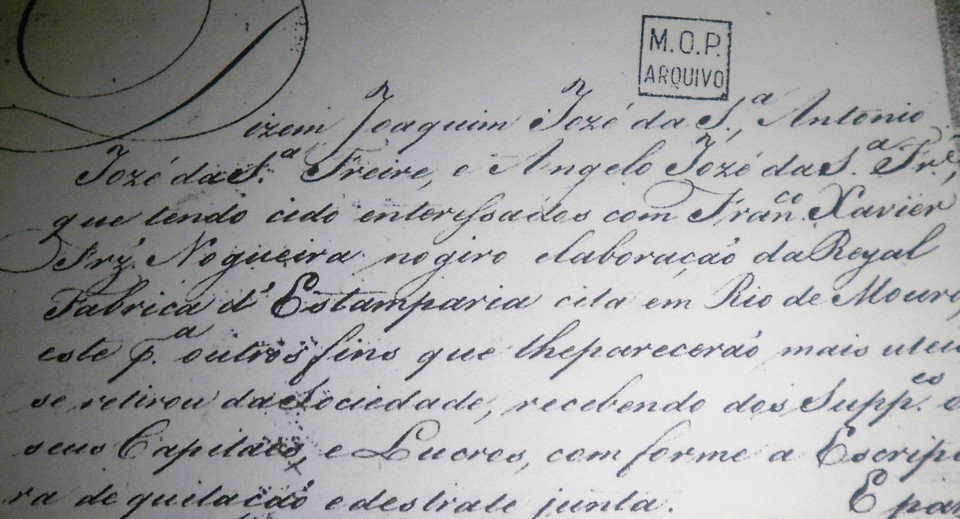 M.O.P.
ARQUIVO
Dizem Joaquim Jozé da S.ª, António
Jozé da S.ª Freire, e Angelo Jozé da S.ª Fr.e,
que tendo cido enteressados com Fran.co Xavier
Frz. Nogueira no giro elaboração da Reyal
Fabrica d'Estamparia cita em Rio de Mouro,
este p.ª outros fins que lheparecerão mais uteis
se retirou da Sociedade, recebendo dos Supp.es
seus Capitaes, e Lucros, com forme a Escrip
ra de quitação edestrate junta. E par